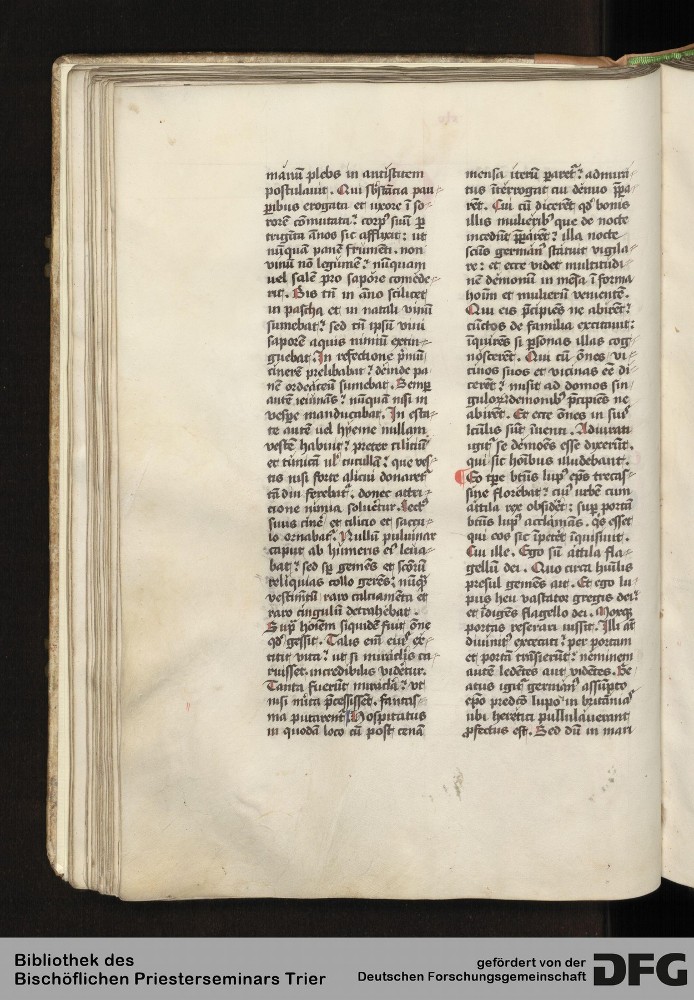 manū plebs in antistitem
postulauit. Qui sbstācia pau
ꝑibus erogata et uxore ī so
rorē cōmutata? corpꝰ suū ꝑ
triginta ānos sic afflixit: ut
nūquā panē frumēti. non
vinū nō legumē? nūquam
uel salē pro sapore comede
rit. Bis tn̄ in āno scilicet
in pascha et in natali vinū
sumebat? sed tn̄ ipsū vini
saporē aquis nimiū extin
guebat. In refectione pͥmū
cinerē prelibabat? deinde pa
nē ordeaceū sumebat. Semꝑ
autē ieiunās? nūquā nisi in
vesꝑe manducabat. In esta
te autē uel hyeme nullam
vestē habuit? preter ciliciū
et tunicā ul' cucullā? que ves
tis nisi forte alicui donaret
tā diu ferebat. donec attri
cione nimia solueret. Lectū
suū cinē et cilicio et saccu
lo ornabat. Nullū puluinar
caput ab humeris eiꝰ leua
bat? sed sꝑ gemēs et scōrū
reliquias collo gerēs? nūqͣ
vestimētū raro calciamēta et
raro cingulū detrahebat.
Supͣ hoīem siquidē fuit om̄e
qd̛ gessit. Talis em̄ eiꝰ ex
titit vita? ut si miraclis ca
ruisset. incredibilis videtur.
Tanta fuerūt miracla? ut
nisi mīta p̄cessissēt. fantas
ma putarent Hospitatus
in quodā loco cū post cenā
mensa iterū pararet? admira
tus īterrogat cui denuo p̄pa
rēt. Cui cū dicerēt qd̛ bonis
illis mulieribꝰ que de nocte
incedūt p̄pararēt? illa nocte
scūs germanꝰ statuit vigila
re: et ecce videt multitudi
nē demonū in mēsa ī forma
hoīm et mulierū venientē.
Qui eis p̄cipiēs ne abirēt?
cūctos de familia excitauit:
īquirēs si ꝑsonas illas cog
noscerēt. Qui cū ōnes vi
cinos suos et vicinas eē di
cerēt? misit ad domos sin
guloꝝ demonibꝰ p̄cipiēs ne
abirēt. Et ecce ōnes in suis
lectulis sūt īuenti. Adiurati
igit̛ se demōes esse dixerūt.
qui sic hoībus illudebant.
Eo tꝑe btūs lupꝰ ep̄s trecas
sine florebat? cuiꝰ urbē cum
attila rex obsidēt: supͣ portā
btūs lupꝰ acclamās. qͥs esset
qui eos sic īpeteret īquisiuit.
Cui ille. Ego sū attila fla
gellū dei. Quo contra humilis
presul gemēs ait. Et ego lu
pus heu vastator gregis dei?
et īdigēs flagello dei. Moxqꝫ
portas reserari iussit. Illi aūt
diuinitꝰ excecati? per portam
et portā trāsierūt? neminem
autē ledētes aut vidētes. Be
atus igit̛ germanꝰ assūpto
ep̄o predco lupo in britānia
ubi heretici pullulauerant
ꝓfectus est. Sed dū in mari
Bibliothek des
Bischöflichen Priesterseminars Trier
gefördert von der
Deutschen Forschungsgemeinschaft
DFG